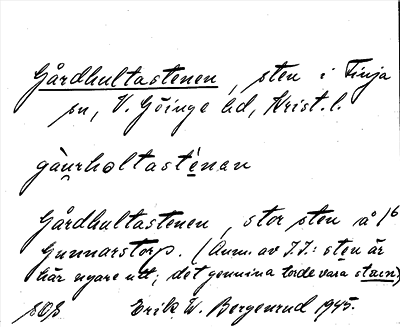 Gårdhultastenen, sten i Finja
sn, V. Göinge hd, Krist. l.
gàu̯rholtastènan
Gårdhultastenen, stor sten å 1/6
Gunnarstorp. (Anm. av I.I.: sten är
här ngare utt; det genuina torde vara stain)
Erik W. Bergenrud 1945.